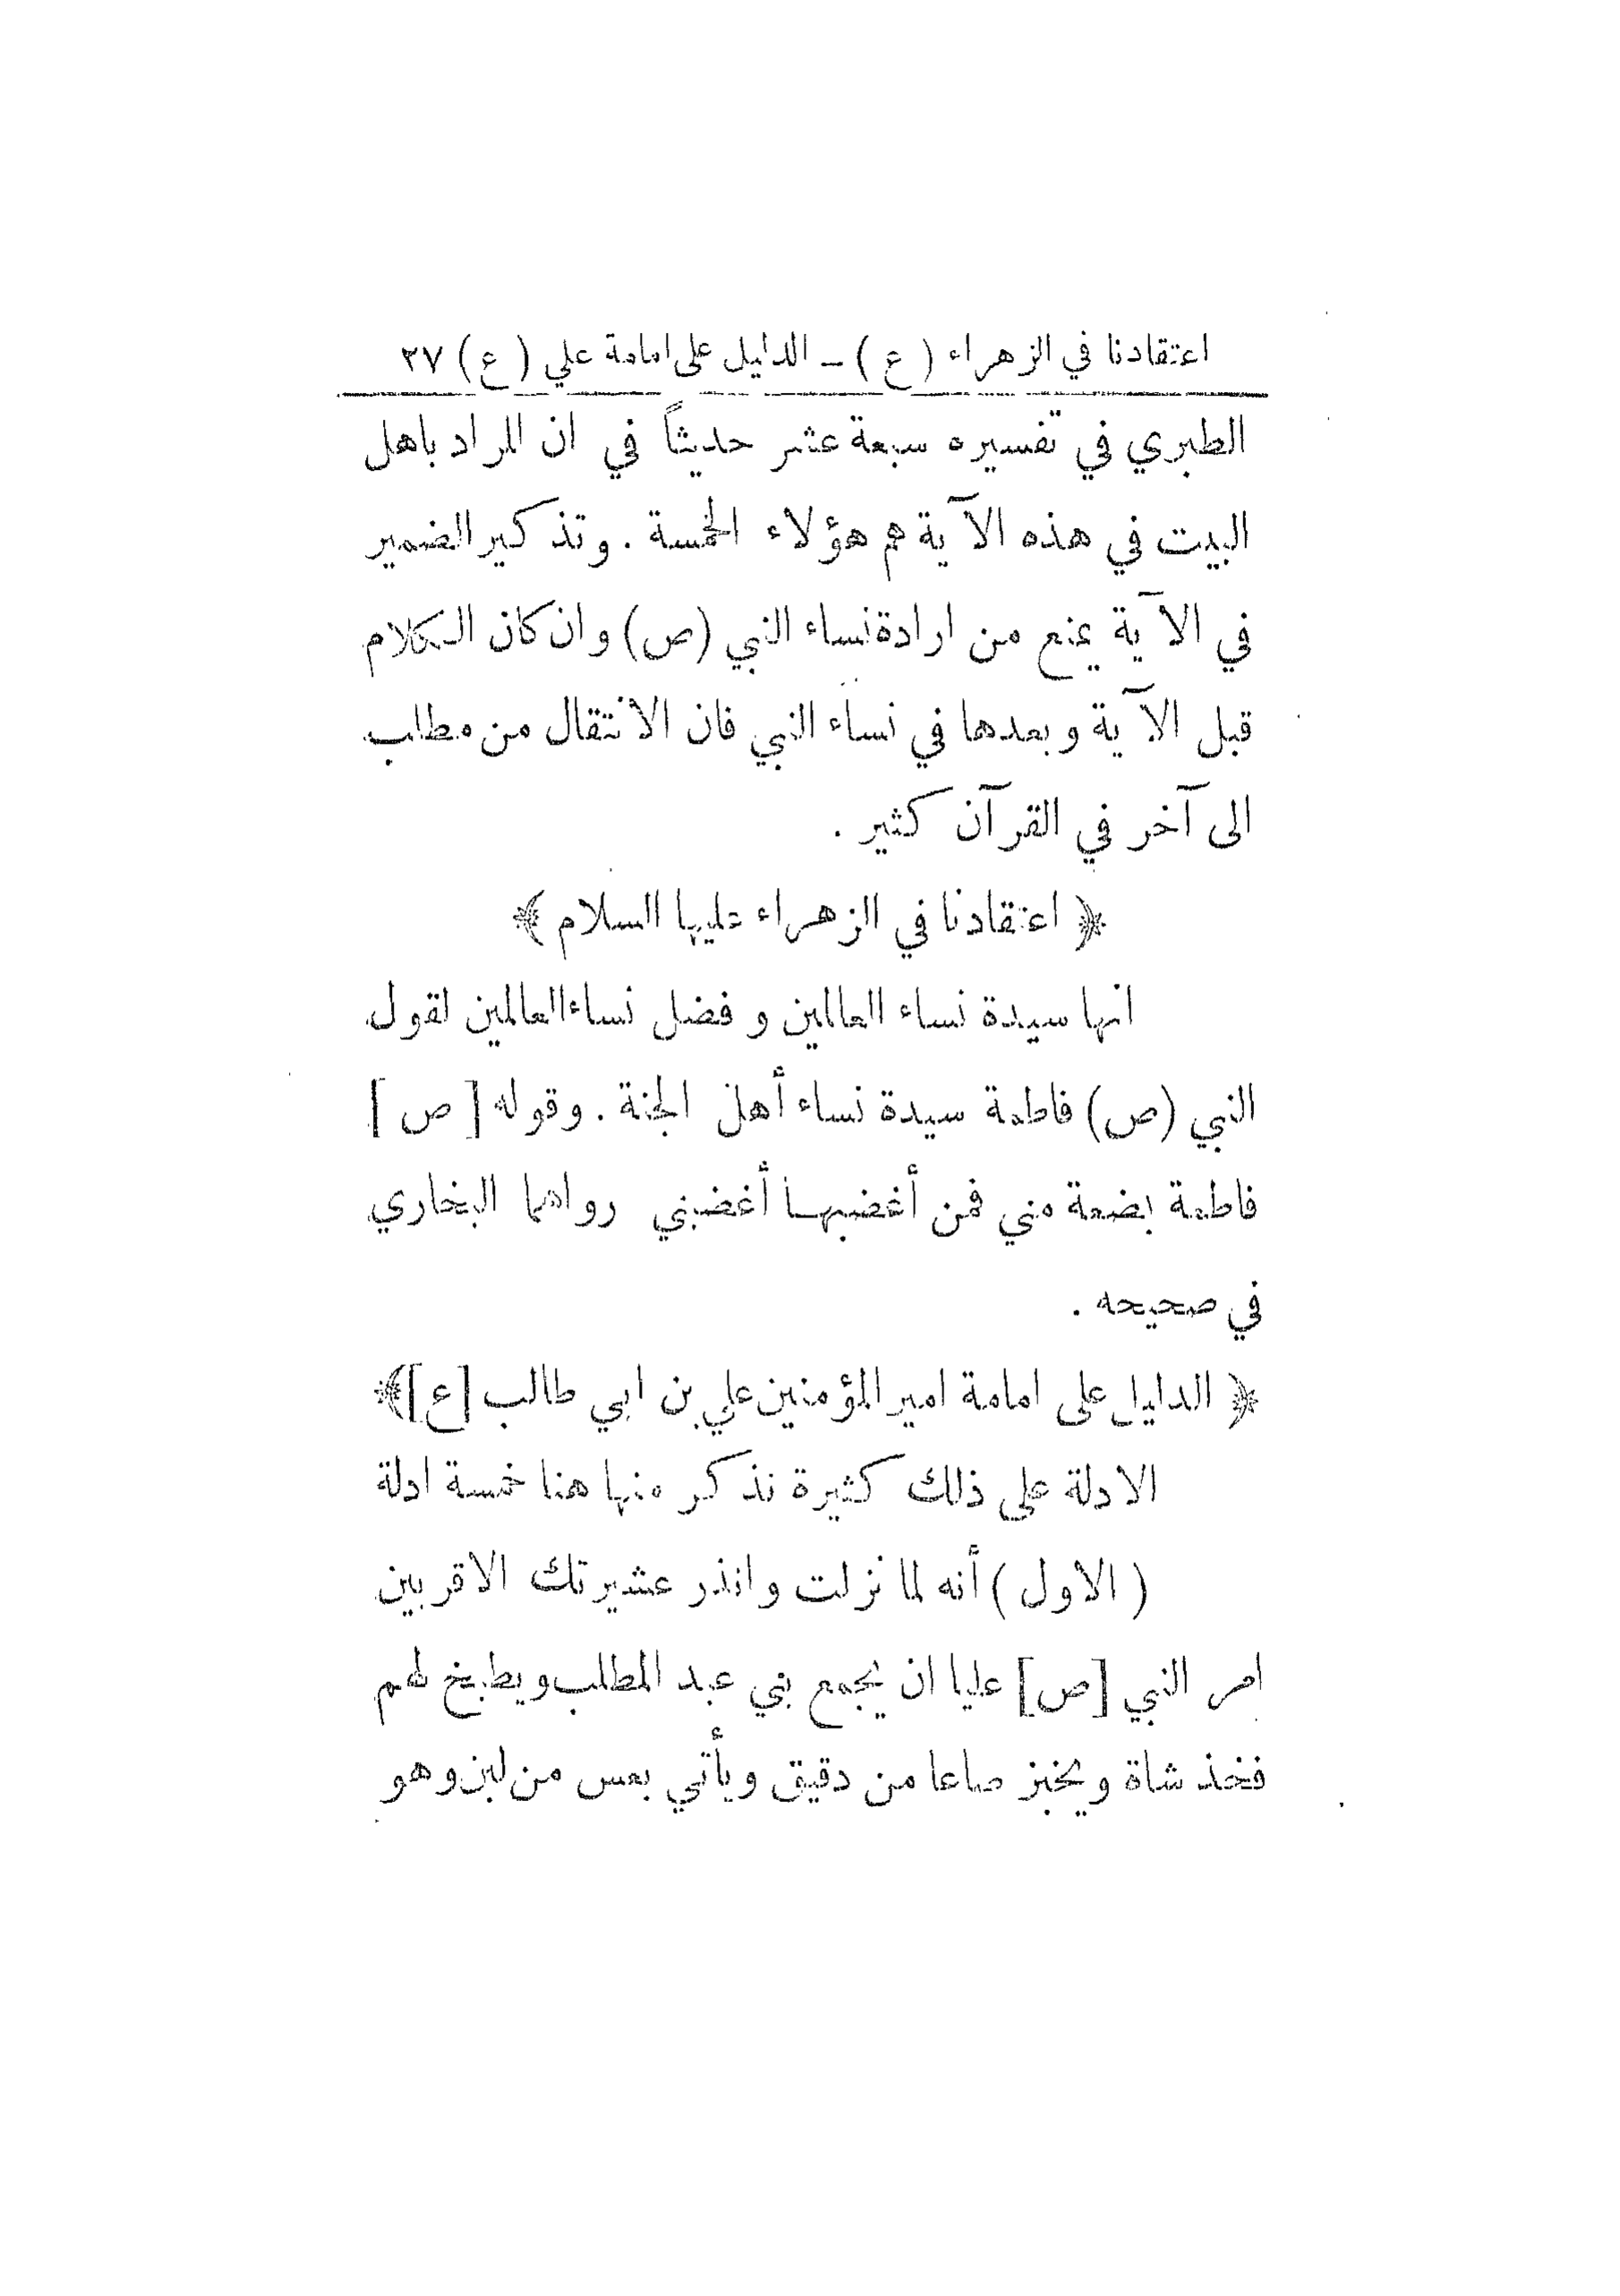 اعتقادنا في الزهراء ( ع ) ــ الدليل على امامة علي ( ع ) ٢٧
الطبري في تفسيره سبعة عشر حديثاً في ان المراد باهل
البيت في هذه الآية هم هؤلاء الخمسة . وتذكير الضمير
في الآية يمنع من ارادة نساء النبي (ص) وان كان الكلام
قبل الآية وبعدها في نساء النبي فان الانتقال من مطلب
الى آخر في القرآن كثير .
﴿ اعتقادنا في الزهراء عليها السلام ﴾
انها سيدة نساء العالمين و فضل نساء العالمين لقول
النبي (ص) فاطمة سيدة نساء أهل الجنة . وقوله [ ص ]
فاطمة بضعة مني فمن أغضبها أغضبني رواهما البخاري
في صحيحه .
﴿ الدليل على امامة امير المؤمنين علي بن ابي طالب [ع] ﴾
الادلة على ذلك كثيرة نذكر منها هنا خمسة ادلة
( الاول ) أنه لما نزلت وانذر عشيرتك الاقربين
امر النبي [ص] عليا ان يجمع بني عبد المطلب ويطبخ لهم
فخذ شاة ويخبز صاعا من دقيق ويأتي بعس من لبن وهو